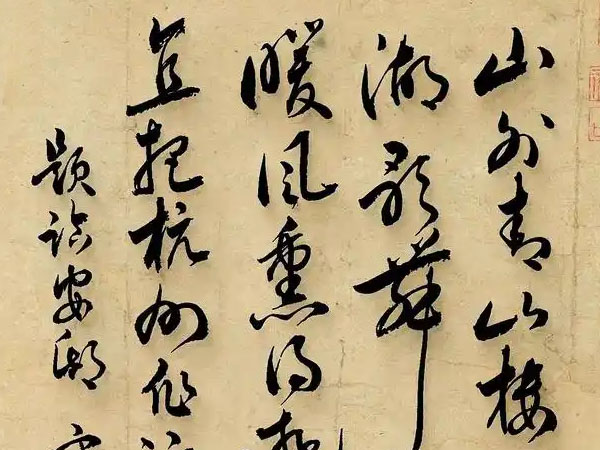 山外青山楼
湖歌舞
暖风熏得
直把杭州作
题临安邸